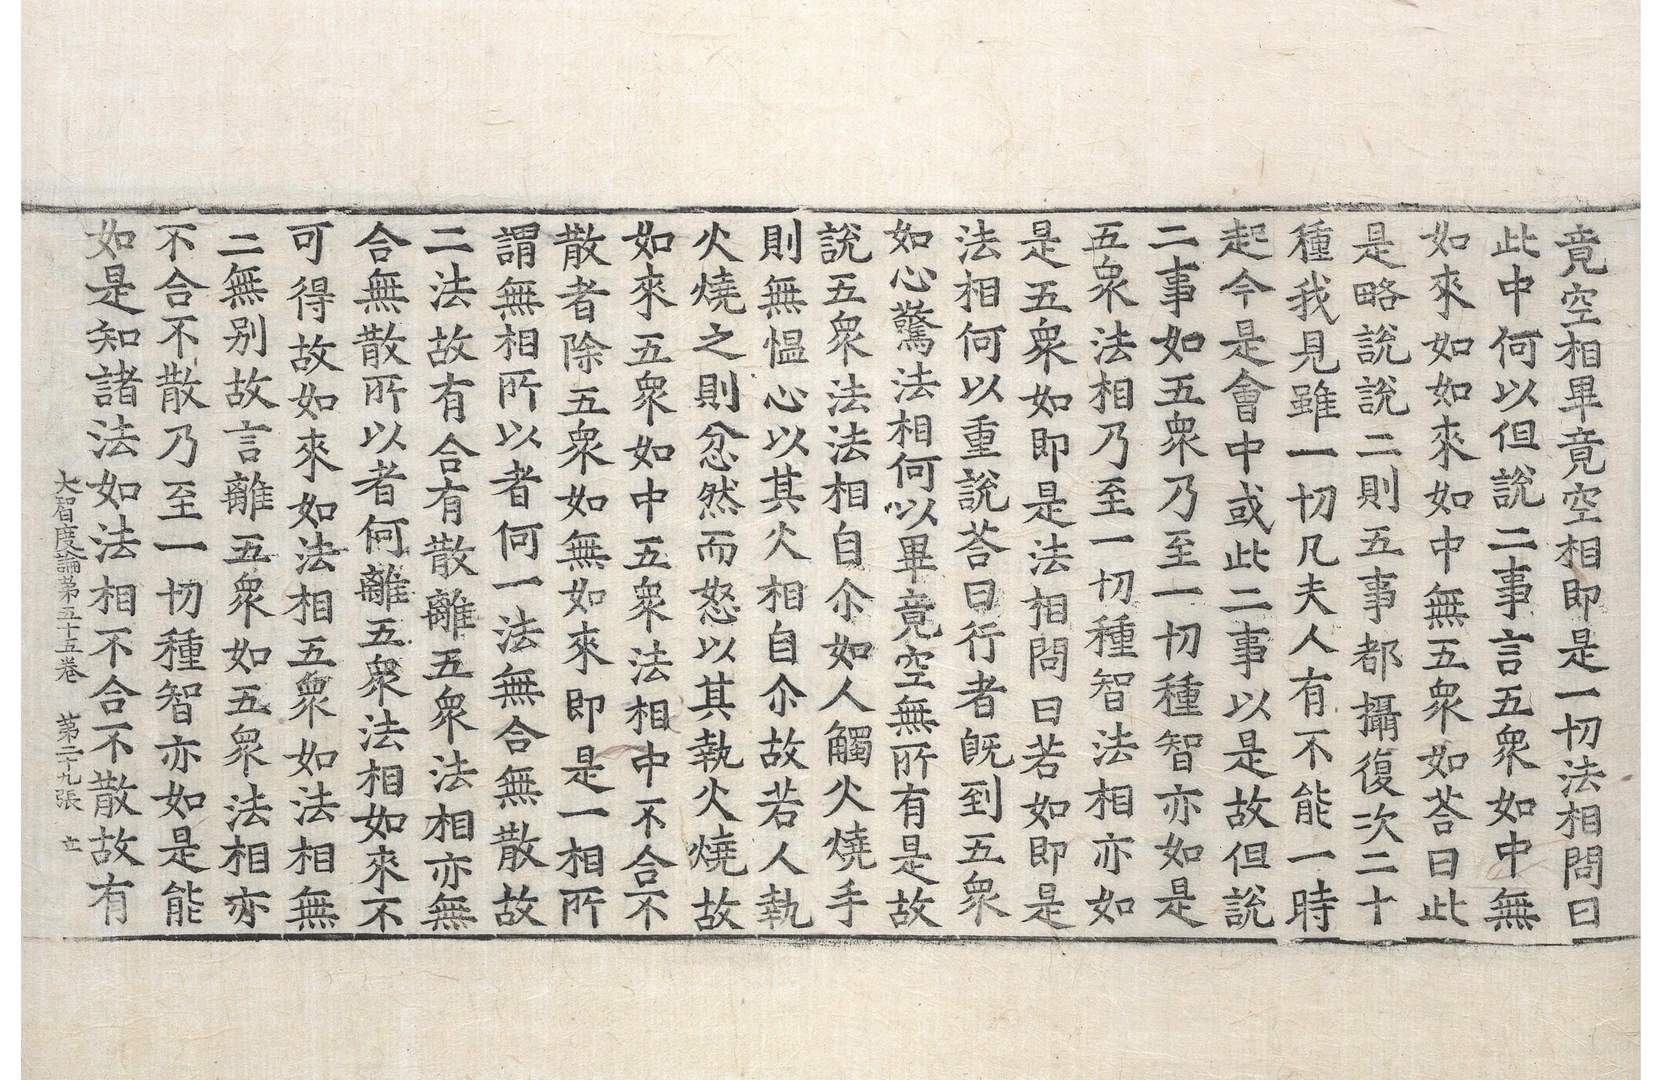 竟空相畢竟空相即是一切法相問曰
此中何以但說二事言五衆如中無
如來如如來如中無五衆如荅曰此
是略說說二則五事都攝復次二十
種我見雖一切凡夫人有不能一時
起今是會中或此二事以是故但說
二事如五衆乃至一切種智亦如是
五衆法相乃至一切種智法相亦如
是五衆如即是法相問曰若如即是
法相何以重說荅曰行者旣到五衆
如心驚法相何以畢竟空無所有是故
說五衆法法相自尒如人觸火燒手
則無慍心以其火相自尒故若人執
火燒之則忿然而怒以其執火燒故
如來五衆如中五衆法相中不合不
散者除五衆如無如來即是一相所
謂無相所以者何一法無合無散故
二法故有合有散離五衆法相亦無
合無散所以者何離五衆法相如來不
可得故如來如法相五衆如法相無
二無别故言離五衆如五衆法相亦
不合不散乃至一切種智亦如是能
如是知諸法如法相不合不散故有
大智度論第五十五卷 第二十九張 立